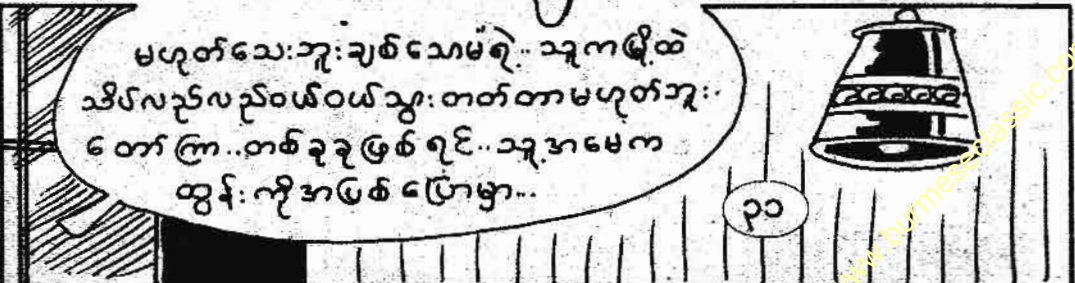 မဟုတ်သေးဘူးချစ်သောမံရဲ့.. သူကမြို့ထဲ
သိပ်လည်လည်ဝယ်ဝယ်သွားတတ်တာမဟုတ်ဘူး.
တော်ကြာ..တစ်ခုခုဖြစ်ရင်..သူ့အမေက
ထွန်းကိုအပြစ်ပြောမှာ...
၃၁
www.burmeseclassic.com